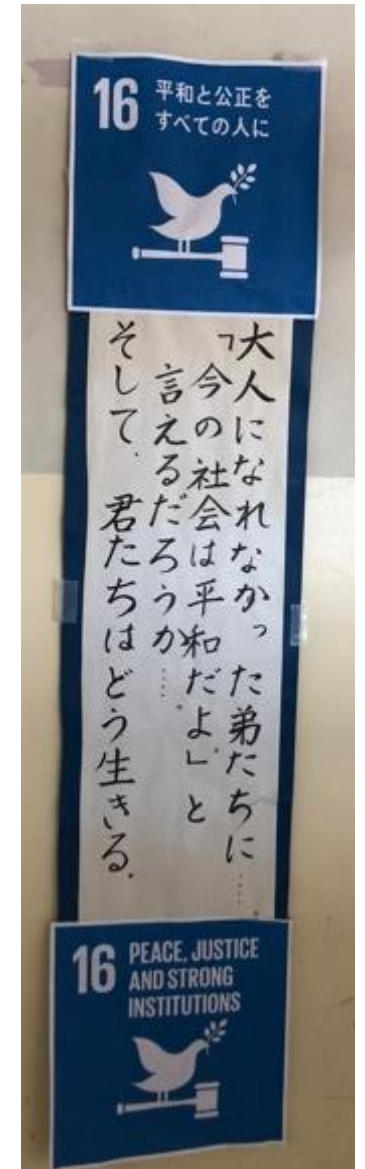 16 平和と公正を
すべての人に
大人になれなかった弟たちに……。
「今の社会は平和だよ」と
言えるだろうか……。
そして、君たちはどう生きる。
16 PEACE, JUSTICE
AND STRONG
INSTITUTIONS